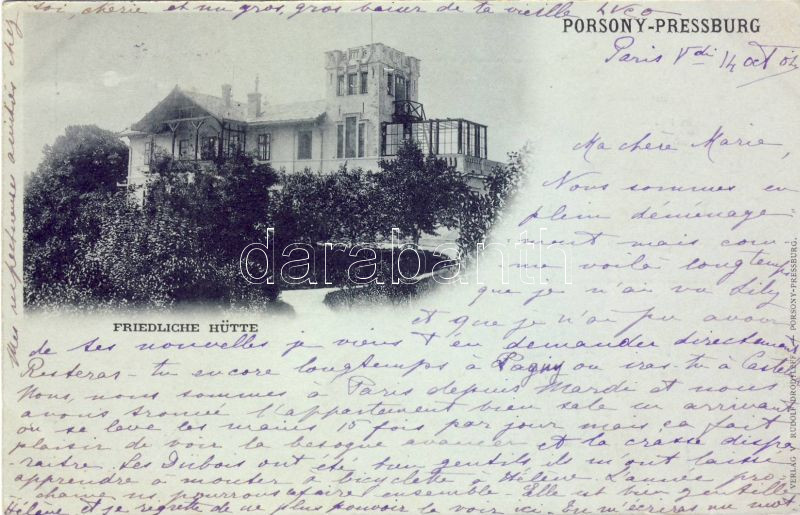 toi, chérie et un gros, gros baiser de ta vieille
PORSONY-PRESSBURG
Paris Vdi 14 oct
Ma chère Marie,
Nous sommes en
plein déménage
ment mais com-
me voilà longtemps
que je n'ai vu Lily
et que je n'ai pu avoir
FRIEDLICHE HÜTTE
de tes nouvelles je viens t'en demander directement
Resteras-tu encore longtemps à Pagny ou iras-tu à
Nous, nous sommes à Paris depuis Mardi et nous
avons trouvé l'appartement bien sale en arrivant
on se lave les mains 15 fois par jour mais ça fait
plaisir de voir la besogne avancer et la crasse dispa-
raître. Les Dubois ont été bien gentils ils m'ont laissé
apprendre à monter à bicyclette à Hélène. L'année pro-
chaine ns pourrons faire ensemble. Elle est bien gentille
Hélène et je regrette de ne plus pouvoir la voir ici. Tu m'écriras un mot
Mes respectueuses amitiés chez
VERLAG V. RUDOLF DRODTLEFF, PORSONY-PRESSBURG.
darabanth